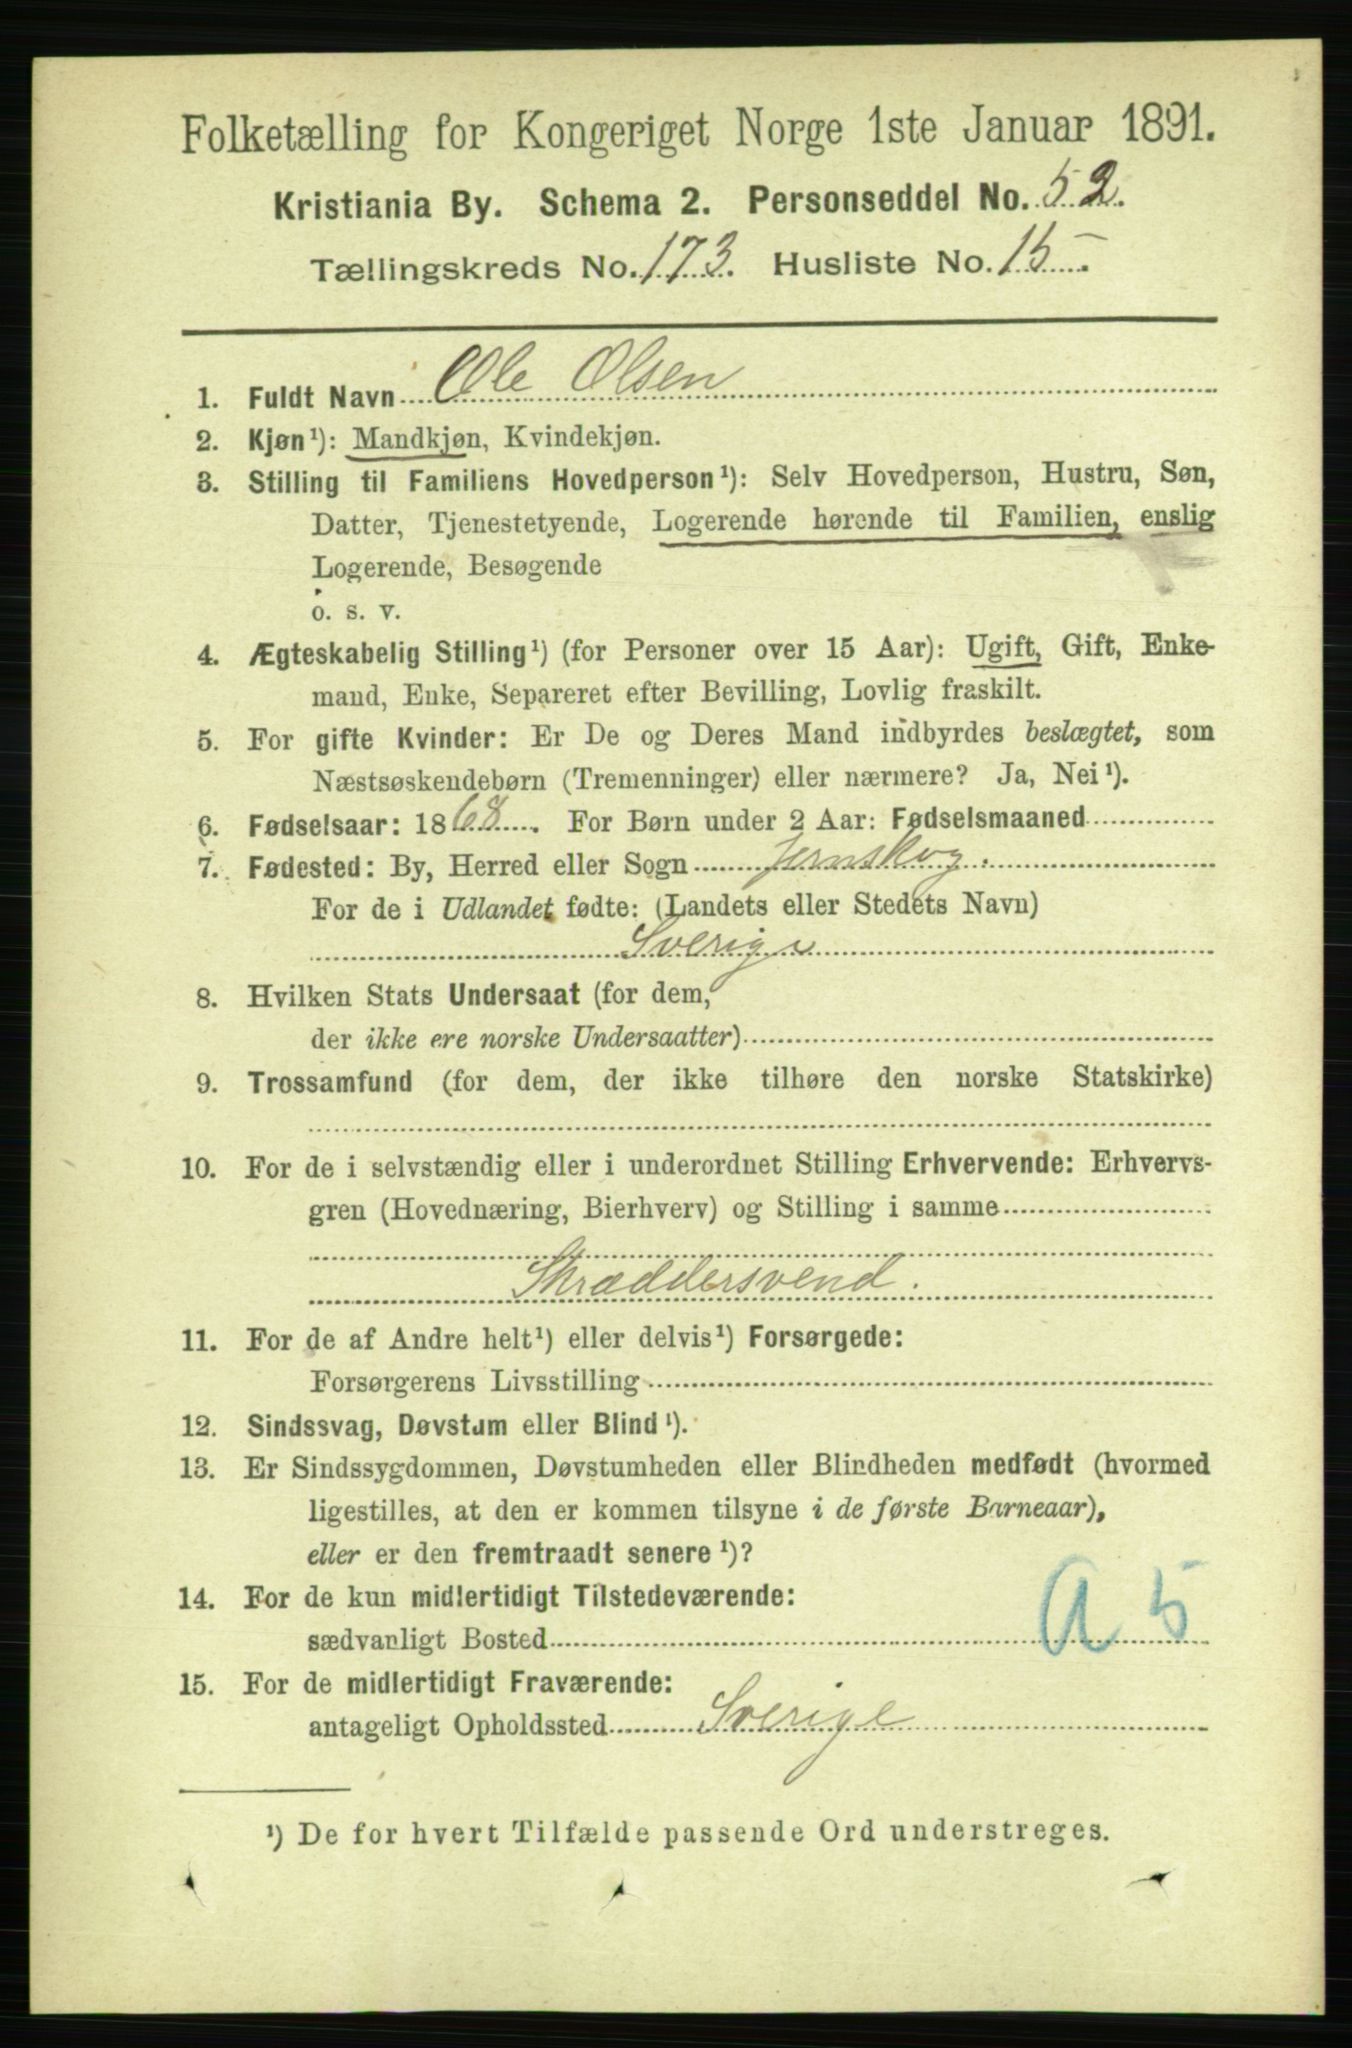 Folketælling for Kongeriget Norge 1ste Januar 1891.
Kristiania By. Schema 2. Personseddel No. 52.
Tællingskreds No. 173. Husliste No. 15.
1. Fuldt Navn Ole Olsen
2. Kjøn¹): Mandkjøn, Kvindekjøn.
3. Stilling til Familiens Hovedperson¹): Selv Hovedperson, Hustru, Søn,
Datter, Tjenestetyende, Logerende hørende til Familien, enslig
Logerende, Besøgende
o. s. v.
4. Ægteskabelig Stilling¹) (for Personer over 15 Aar): Ugift, Gift, Enke-
mand, Enke, Separeret efter Bevilling, Lovlig fraskilt.
5. For gifte Kvinder: Er De og Deres Mand indbyrdes beslægtet, som
Næstsøskendebørn (Tremenninger) eller nærmere? Ja, Nei¹).
6. Fødselsaar: 1868. For Børn under 2 Aar: Fødselsmaaned
7. Fødested: By, Herred eller Sogn Jernskog.
For de i Udlandet fødte: (Landets eller Stedets Navn)
Sverige
8. Hvilken Stats Undersaat (for dem,
der ikke ere norske Undersaatter)
9. Trossamfund (for dem, der ikke tilhøre den norske Statskirke)
10. For de i selvstændig eller i underordnet Stilling Erhvervende: Erhvervs-
gren (Hovednæring, Bierhverv) og Stilling i samme
Skræddersvend.
11. For de af Andre helt¹) eller delvis¹) Forsørgede:
Forsørgerens Livsstilling
12. Sindssvag, Døvstum eller Blind¹).
13. Er Sindssygdommen, Døvstumheden eller Blindheden medfødt (hvormed
ligestilles, at den er kommen tilsyne i de første Barneaar),
eller er den fremtraadt senere¹)?
14. For de kun midlertidigt Tilstedeværende:
sædvanligt Bosted A 5
15. For de midlertidigt Fraværende:
antageligt Opholdssted Sverige
¹) De for hvert Tilfælde passende Ord understreges.